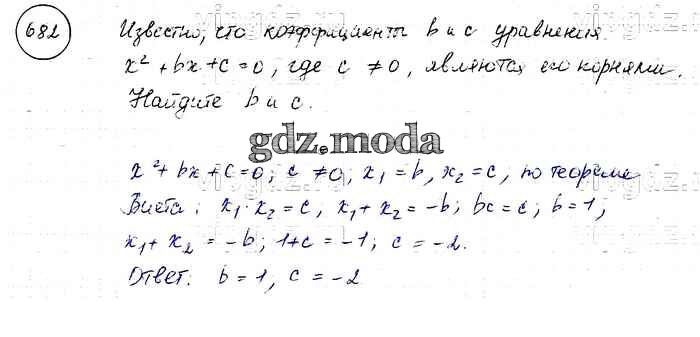 682
Известно, что коэффициенты b и c уравнения
x² + bx + c = 0, где c ≠ 0, являются его корнями.
Найдите b и c.
gdz.moda
x² + bx + c = 0; c ≠ 0; x₁ = b, x₂ = c, по теореме
Виета: x₁ · x₂ = c, x₁ + x₂ = -b; bc = c; b = 1;
x₁ + x₂ = -b; 1 + c = -1; c = -2.
Ответ: b = 1, c = -2